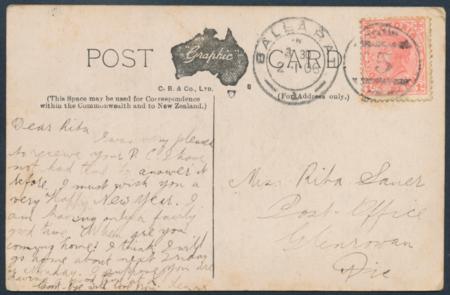 POST CARD
"Graphic"
C. B. & Co., LTD.
(This Space may be used for Correspondence
within the Commonwealth and to New Zealand.)
(For Address only.)
BALLARA
2 1 06
5
Dear Rita
I was very please
to receive your P.C. I have
not had time to answer it
before. I must wish you a
very Happy New Year. I
am having only a fairly
good time. When are you
coming home? I think I will
go home about next Friday
or Monday. I suppose you are
having
Good-bye
Miss Rita Sauer
Post-Office
Glenrowan
Vic